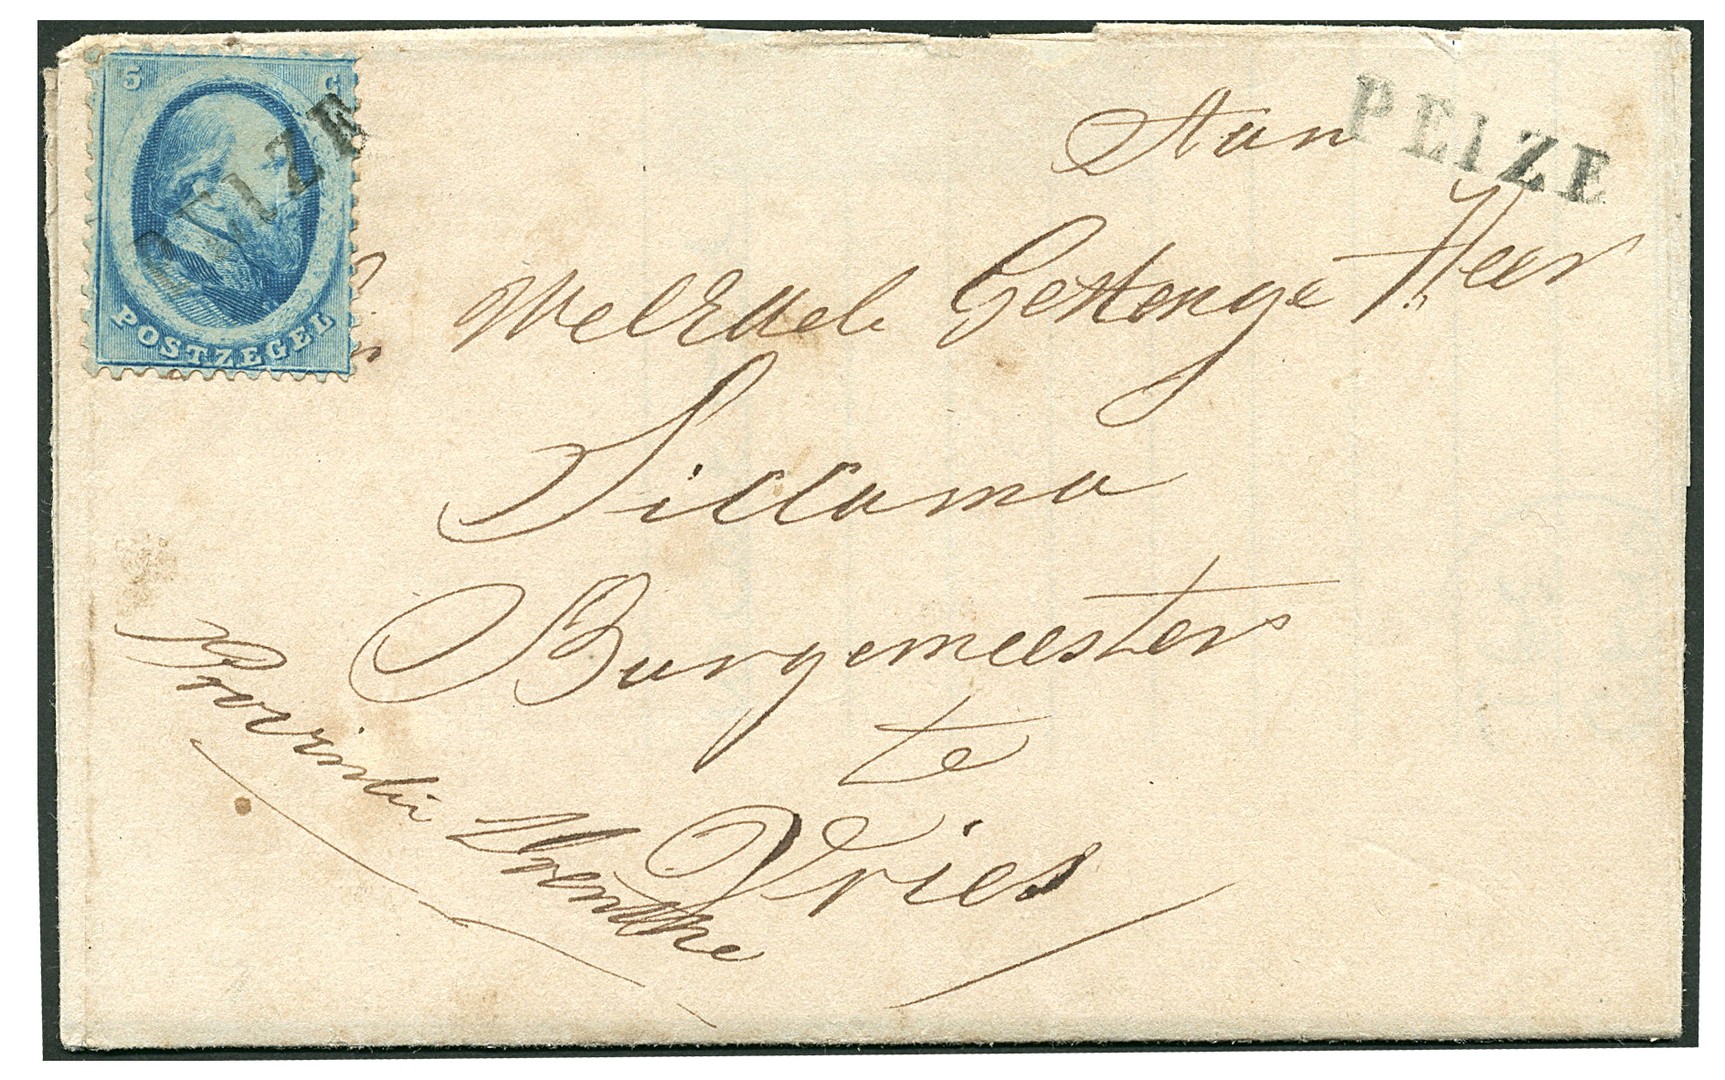 5 C
PEIZE
POSTZEGEL
PEIZE
Aan
Wel Edele Gestenge Heer
Siccama
Burgemeester
te
Vries
Provintie Drenthe